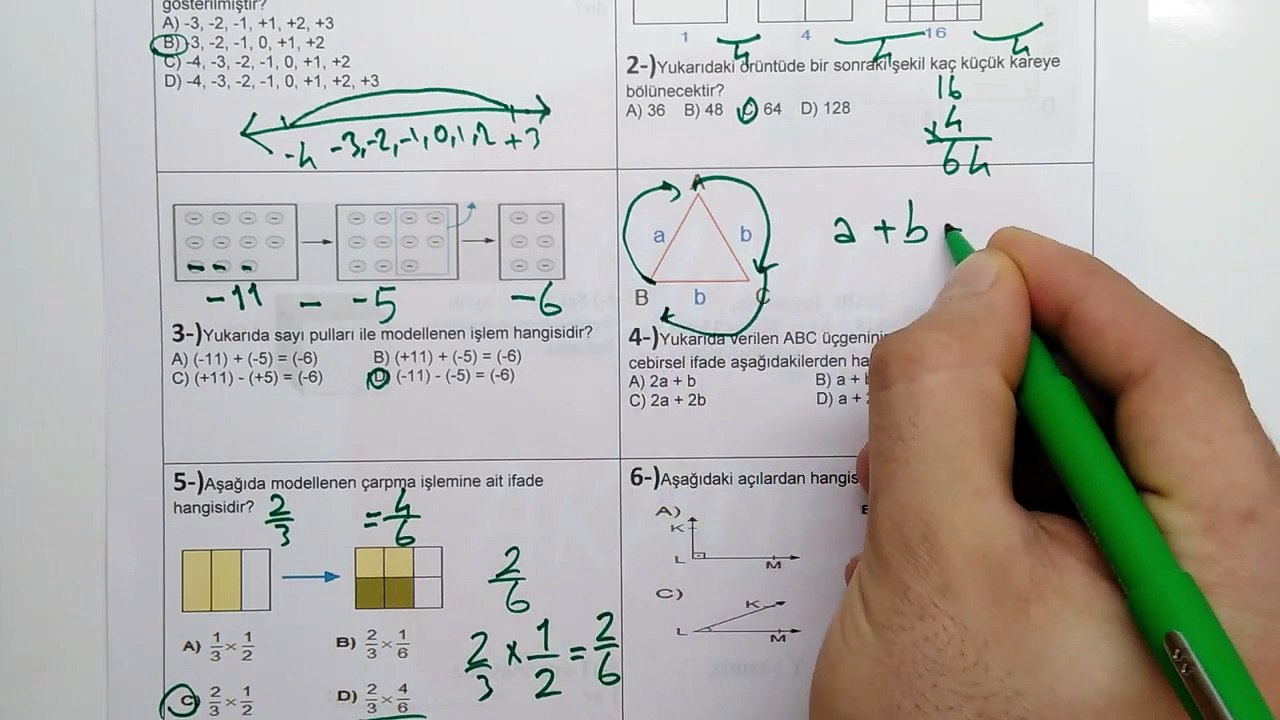 gösterilmiştir?
A) -3, -2, -1, +1, +2, +3
B) -3, -2, -1, 0, +1, +2
C) -4, -3, -2, -1, 0, +1, +2
D) -4, -3, -2, -1, 0, +1, +2, +3
-4 -3,-2,-1,0,1,2 +3
1 4 16
4 4 4
2-)Yukarıdaki örüntüde bir sonraki şekil kaç küçük kareye
bölünecektir?
A) 36 B) 48 C) 64 D) 128
16
x 4
64
-11 - -5 -6
3-)Yukarıda sayı pulları ile modellenen işlem hangisidir?
A) (-11) + (-5) = (-6) B) (+11) + (-5) = (-6)
C) (+11) - (+5) = (-6) D) (-11) - (-5) = (-6)
A
a b
B b C
a + b
4-)Yukarıda verilen ABC üçgenin
cebirsel ifade aşağıdakilerden
A) 2a + b B) a +
C) 2a + 2b D) a +
5-)Aşağıda modellenen çarpma işlemine ait ifade
hangisidir?
2/3 = 4/6
2/6
A) 1/3 × 1/2 B) 2/3 × 1/6
2/3 × 1/2 = 2/6
C) 2/3 × 1/2 D) 2/3 × 4/6
6-)Aşağıdaki açılardan
A)
K
L M
C)
K
L M